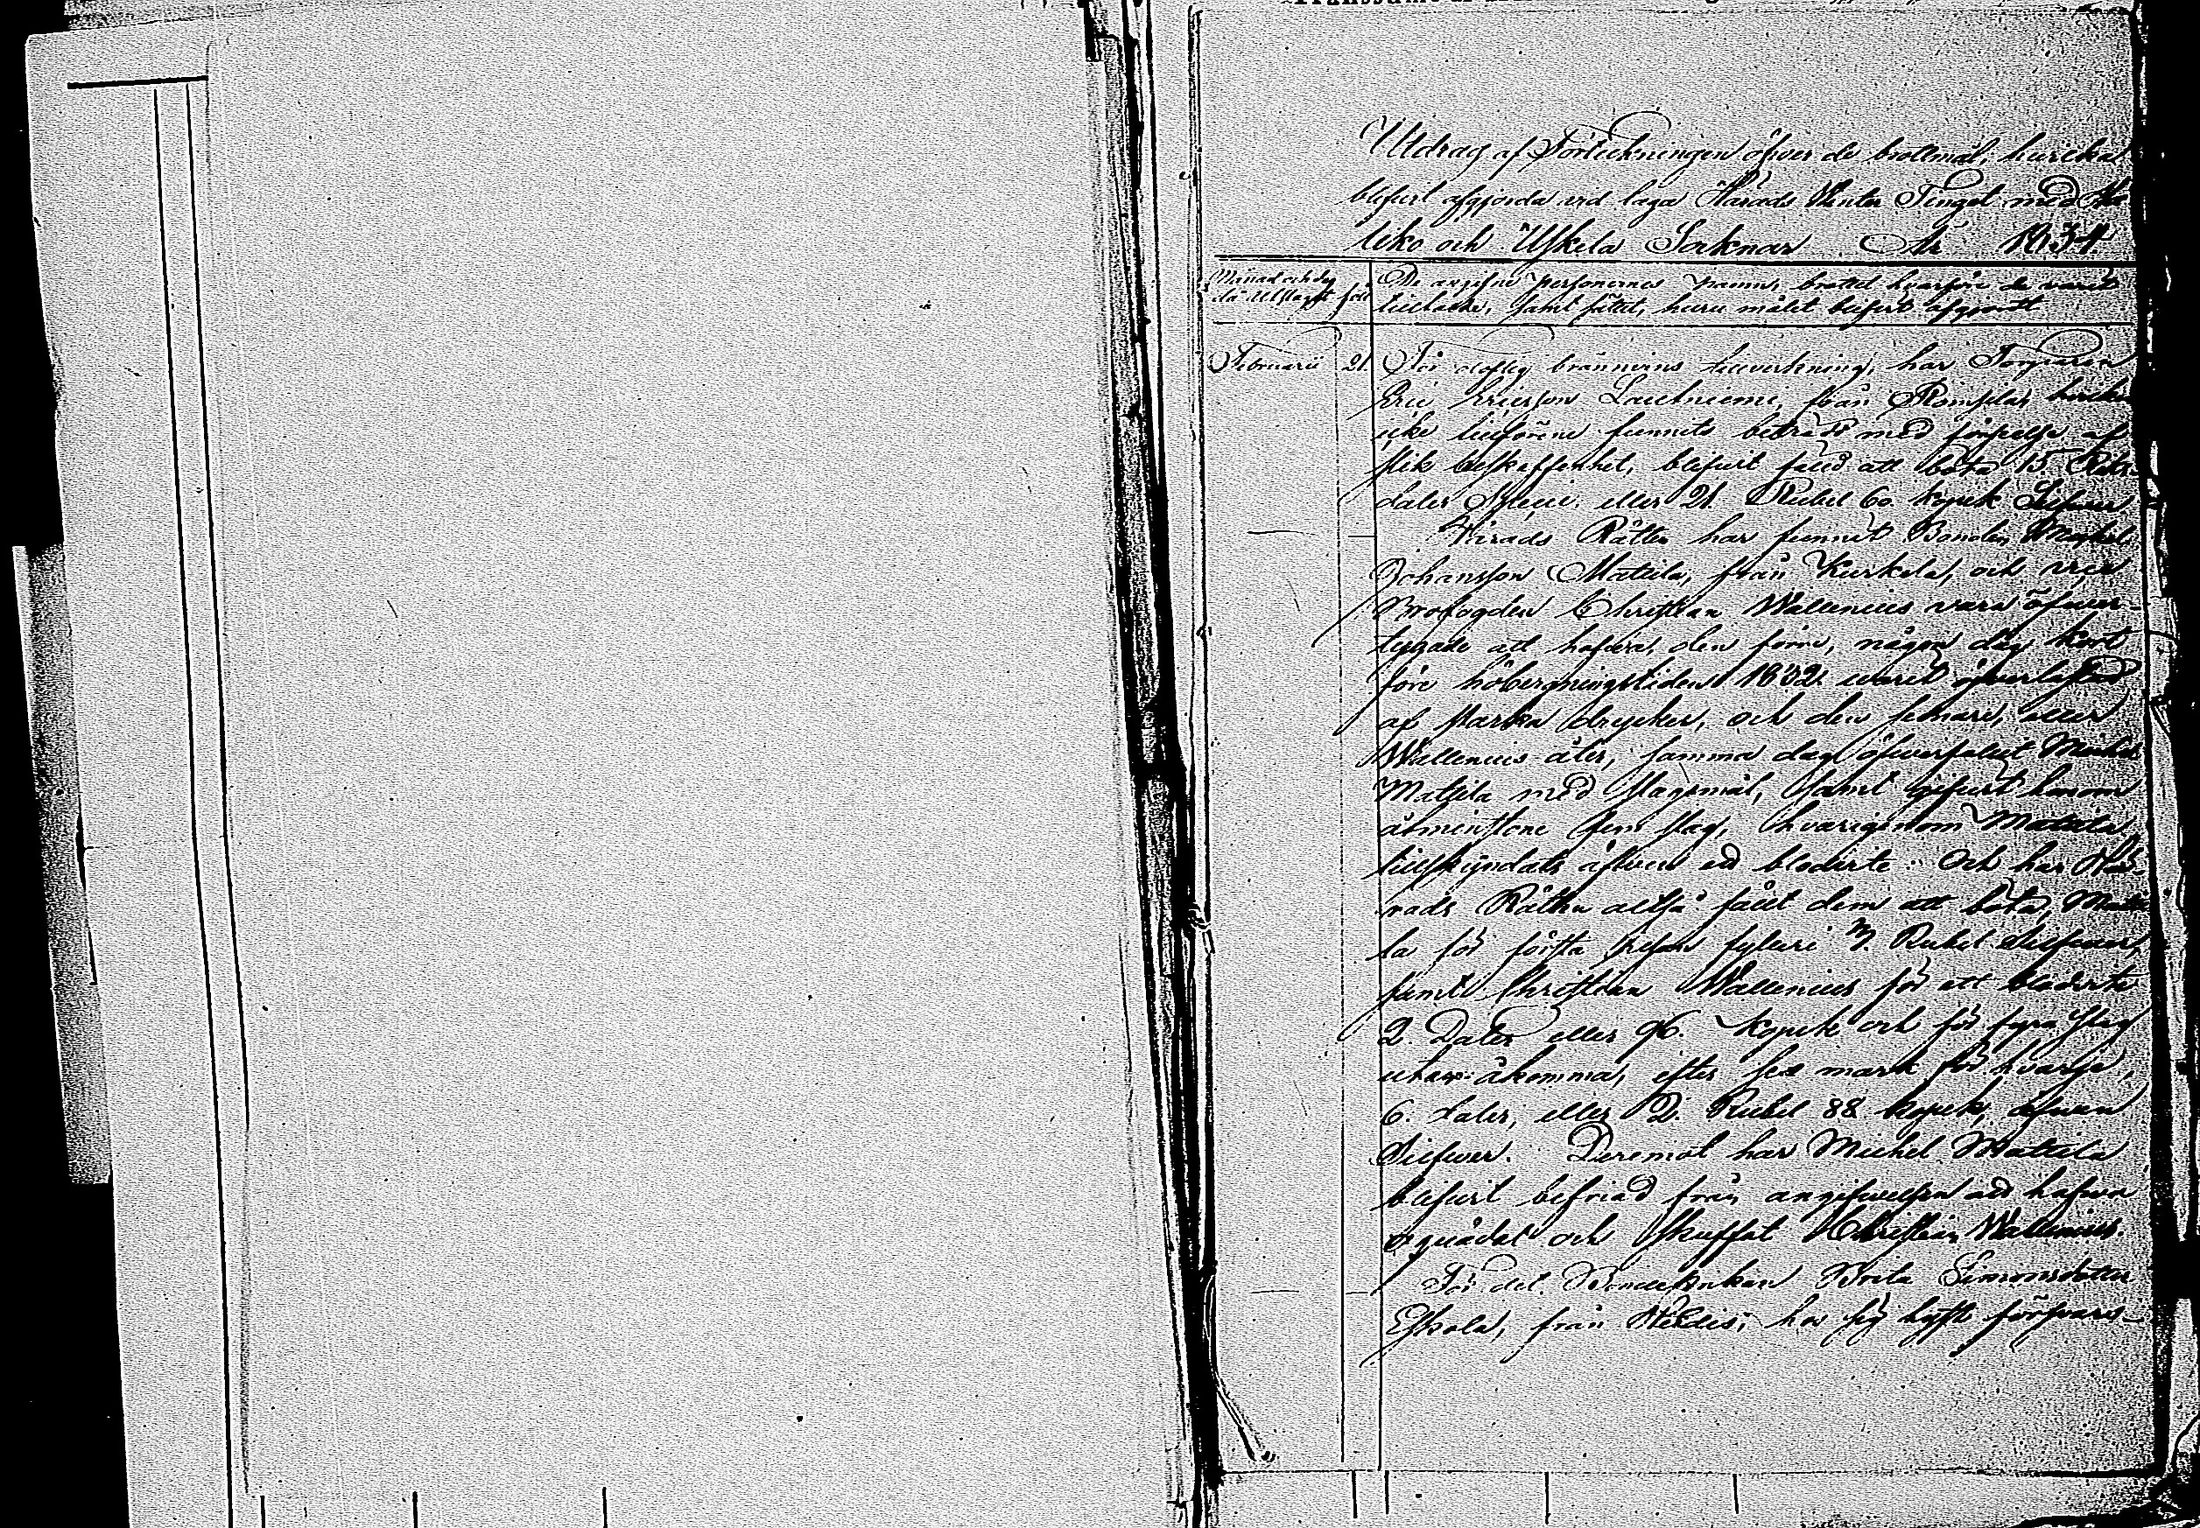 Utdrag af Förteckningen öfver de brottmål, hvilka
blifvit afgjorda vid laga Härads Vinter Tinget med Ha
liko och Uskela Soknar År 1834
Månad och dag
då Utslaget fallit
De angifne personernes namn, brottet hvarföre de varit
tilltalde, samt sättet, huru målet blifvit afgjordt
Februarii 21. För olaflig brännvins tillverkning, har Torparen
Eric Ericsson Lauhniemi, från
icke tillförene funnits beträdd med förseelse af
slik beskaffenhet, blifvit fälld att böta 15 Riks-
daler Specie, eller 21. Rubel 60. kopek Silfver
Härads Rätten har funnit Bonden Michel
Johansson Mattila, från Kurkela, och
Brofogden Christian Wallenius vara öfver-
tygade att hafva, den förre, någon dag kort
före höbergningstiden 1832 varit öfverlastad
af starka drycker, och den sednare, eller
Wallenius åter, samma dag öfverfallit Michel
Mattila med slagsmål, samt gifvit honom
åtminstone fem slag, hvarigenom Mattila
tillskyndats äfven ett blodvite: Och har Hä-
rads Rätten altså fällt dem att böta, Matti
la för första resan fylleri 3. Rubel Silfver,
samt Christian Wallenius för ett blodvite
2. Daler eller 96. kopek och för fyra slag
utan åkomma, efter sex mark för hvarje,
6. daler, eller 2. Rubel 88 kopek, äfven
Silfver. Deremot har Michel Mattila
blifvit befriad från angifvelsen att hafva
oquädat och skuffat Christian Wallenius.
För det Bondeenkan Brita Simonsdotter
Eskola, från hos sig hyst försvars-